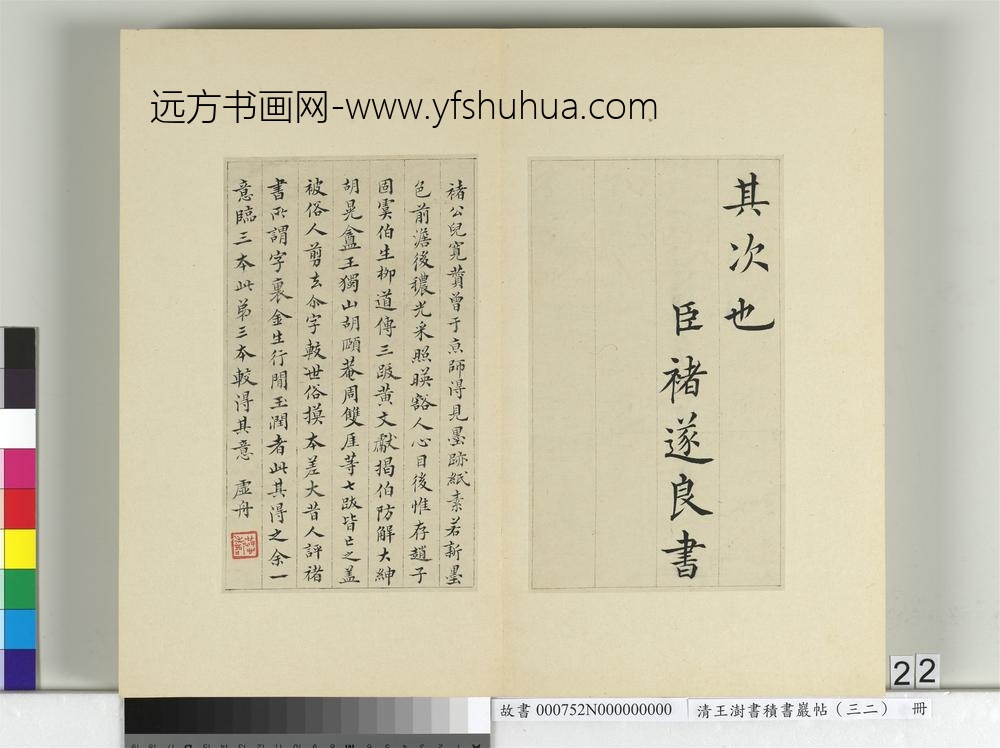 远方书画网-www.yfshuhua.com
其次也
臣褚遂良書
褚公兒寬贊曾于京師得見墨跡紙素若新墨
色前澹後穠光采照暎豁人心目後惟存趙子
固虞伯生柳道傳三跋黃文獻揭伯防解大紳
胡晃盫王獨山胡頤菴周雙厓等七跋皆亡之盖
被俗人剪去尒字較世俗摸本差大昔人評褚
書所謂字裏金生行閒玉潤者此其得之余一
意臨三本此弟三本較得其意 虛舟
22
故書 000752N000000000
清王澍書積書巖帖（三二） 冊